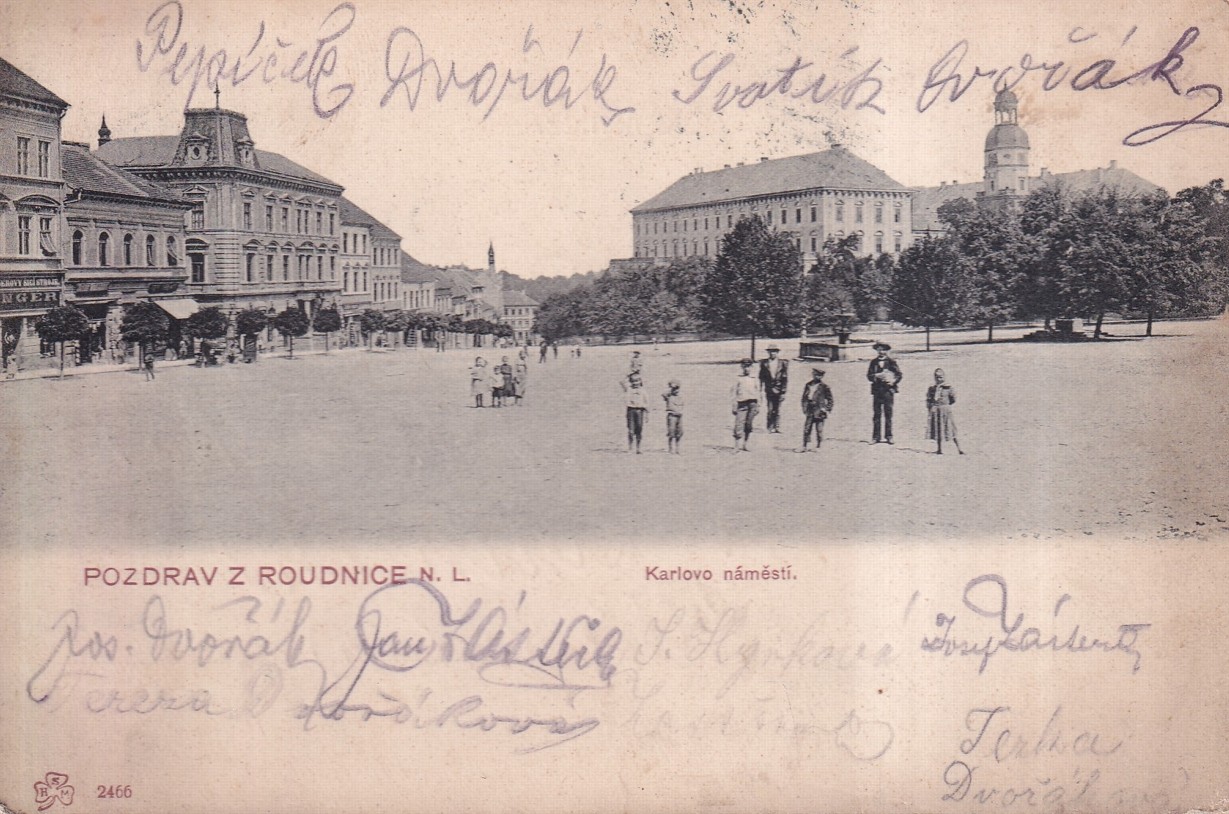 Pepíček Dvořák Svatík Dvořák
NGER
POZDRAV Z ROUDNICE N. L.
Karlovo náměstí.
Jos. Dvořák Jan
Tereza Dvořáková
Terka
Dvořáková
HSM
2466